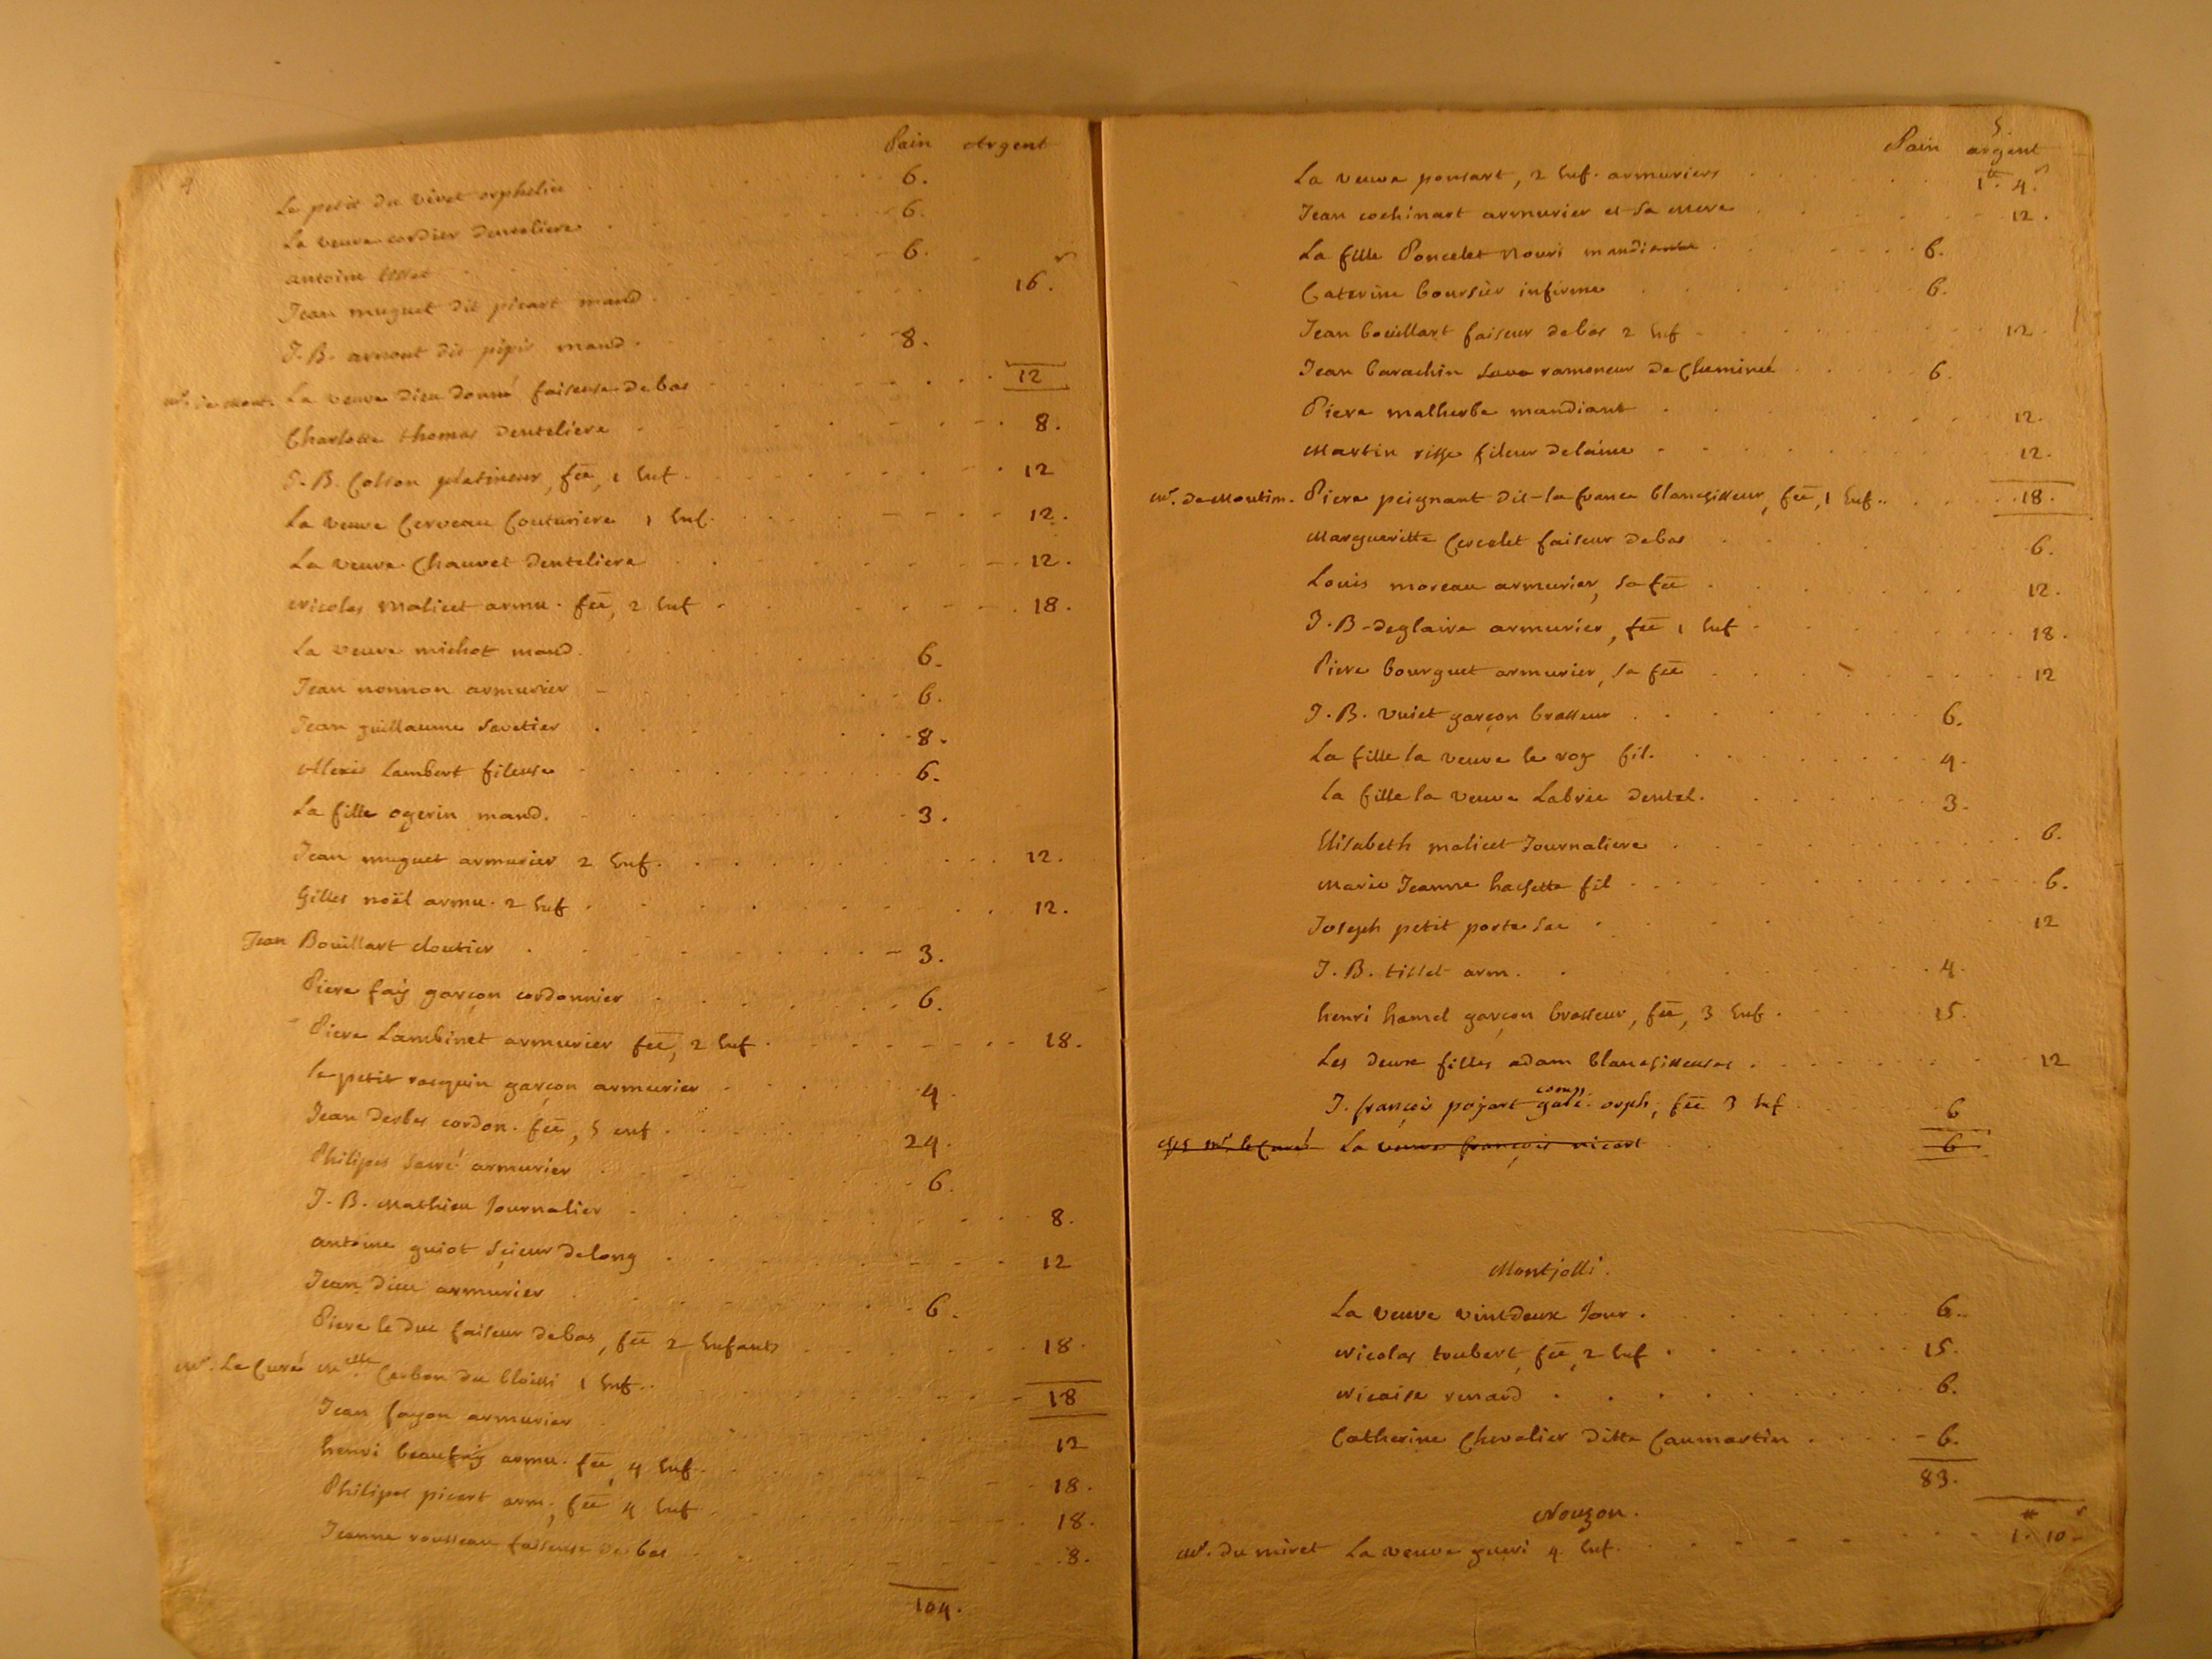 4
Pain Argent
Le petit du vivet orphelin 6.
La veuve cordier denteliere 6.
antoine 6.
Jean muguet dit picart mand. 16.s
J. B. arnout dit pipir mand. 8.
Mr. de Mont. La veuve dieu donné faiseuse de bas 12
Charlotte thomas denteliere 8.
J. B. Colson platineur, fẽe, 1 Enf. 12
La veuve Cerveau Couturiere 1 Enf. 12.
La veuve Chauvet denteliere 12.
Nicolas Malicet armu. fẽe, 2 Enf 18.
La veuve michot mand. 6.
Jean nonnon armurier 6.
Jean guillaume savetier 8.
Alexis Lambert fileuse 6.
La fille ogerin mand. 3.
Jean muguet armurier 2 Enf. 12.
Gilles noël armu. 2 Enf 12.
Jean Bouillart cloutier 3.
Piere faÿ garçon cordonnier 6.
Piere Lambinet armurier fẽe, 2 Enf 18.
le petit racquin garçon armurier 4.
Jean desbes cordon. fẽe, 5 enf 24.
Philipes Savé armurier 6.
J. B. Mathieu Journalier 8.
antoine guiot sçieur de long 12
Jean dieu armurier 6.
Piere le duc faiseur de bas, fẽe 2 Enfants 18.
Mr. Le Curé Melle. Cerbon du 1 Enf. 18
Jean fayon armurier 12
henri armu. fẽe 4 Enf. 18.
Philipes picart arm. fẽe 4 Enf 18.
Jeanne rousseau faiseuse de bas 8.
104.
5
Pain argent
La veuve ponsart, 2 Enf. armuriers 1tt. 4.s
Jean cochinart armurier et sa mere 12.
La fille Poncelet Nouri mandiante 6.
Caterine boursier infirme 6.
Jean boüillart faiseur de bas 2 Enf 12.
Jean barachin ramoneur de Cheminé 6.
Piere malherbe mandiant 12.
Martin risse fileur de laine 12.
Mr. de Moutim. Piere peignant dit la france blanchisseur, fẽe, 1 Enf. 18.
Margueritte Cercelet faiseur de bas 6.
Louis moreau armurier, sa fẽe 12.
J. B. deglaire armurier, fẽe 1 Enf 18.
Piere bourguet armurier, sa fẽe 12
J. B. vuiet garçon brasseur 6.
La fille la veuve le roy fil. 4.
la fille la veuve Labrie dentel. 3.
Elisabeth malicet Journaliere 6.
Marie Jeanne hachette fil 6.
Joseph petit porte sac 12
J. B. tisset arm. 4.
henri hamel garçon brasseur, fẽe, 3 Enf. 15.
Les deux filles adam blanchisseuses 12
J. françois pojart orph, fẽe 3 Enf 6
chés Mr. le Curé La veuve françois nicart 6
Montjolli.
La veuve vintdeux Jour. 6.
Nicolas toubert, fẽe, 2 Enf 15.
Nicaise renard 6.
Catherine Chevalier ditte Caumartin 6.
83.
Nouzon.
Mr. du miret La veuve gueri 4 Enf. 1.tt 10.s